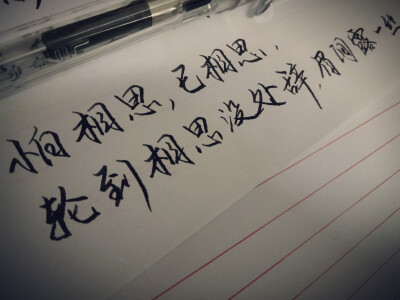 怕相思,已相思,
轮到相思没处辞,眉间露一丝